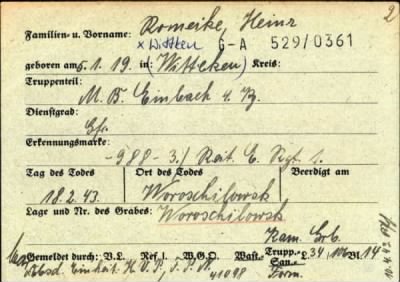 2
Familien- u. Vorname: Romeike, Heinz
x Witten G-A 529/0361
geboren am 6. 1. 19. in (Witteken) Kreis:
Truppenteil:
M. B. Einbach
Dienstgrad:
Gfr.
Erkennungsmarke:
-988- 3./ Reit. E. Rgt. 1.
Tag des Todes Ort des Todes Beerdigt am
18. 2. 43. Woroschilowsk
Lage und Nr. des Grabes: Woroschilowsk
Kam. Grb.
Gemeldet durch: V.L. Ref. I. W.G.O. Wast.- Trupp.- L 34/106 Bl. 14
Absd. Einheit H.V.P., F.P.N. San.- Form.
41098
10.4.43